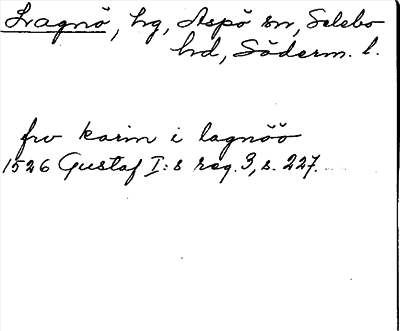 Lagnö, hg, Aspö sn, Selebo
hd, Söderm. l.
fru karin i lagnöö
1526 Gustaf I:s reg. 3, s. 227.